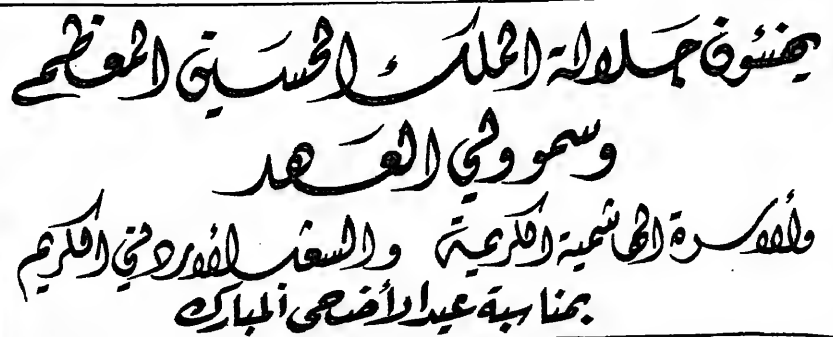 يهنئون جلالة الملك الحسين المعظم
وسمو ولي العهد
والأسرة الهاشمية الكريمة والشعب الأردني الكريم
بمناسبة عيد الأضحى المبارك